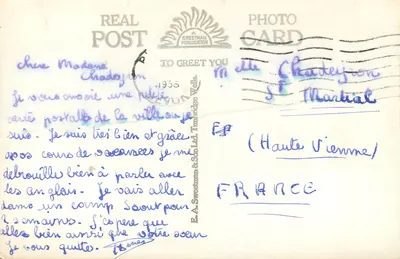 REAL PHOTO
POST CARD
SWEETMAN
PUBLICATION
TO GREET YOU
1956
chère Madame
Chadeyron
Je vous envoie une petite
carte postale de la ville où je
suis. Je suis très bien et grâce
vos cours de vacances je me
débrouille bien à parler avec
les anglais. Je vais aller
dans un camp scout pour
2 semaines. J'espère que
allez bien ainsi que votre sœur
Je vous quitte.
Melle Chadeyron
St Martial
(Haute Vienne)
FRANCE
E.A. Sweetman & Son Ltd. Tunbridge Wells.